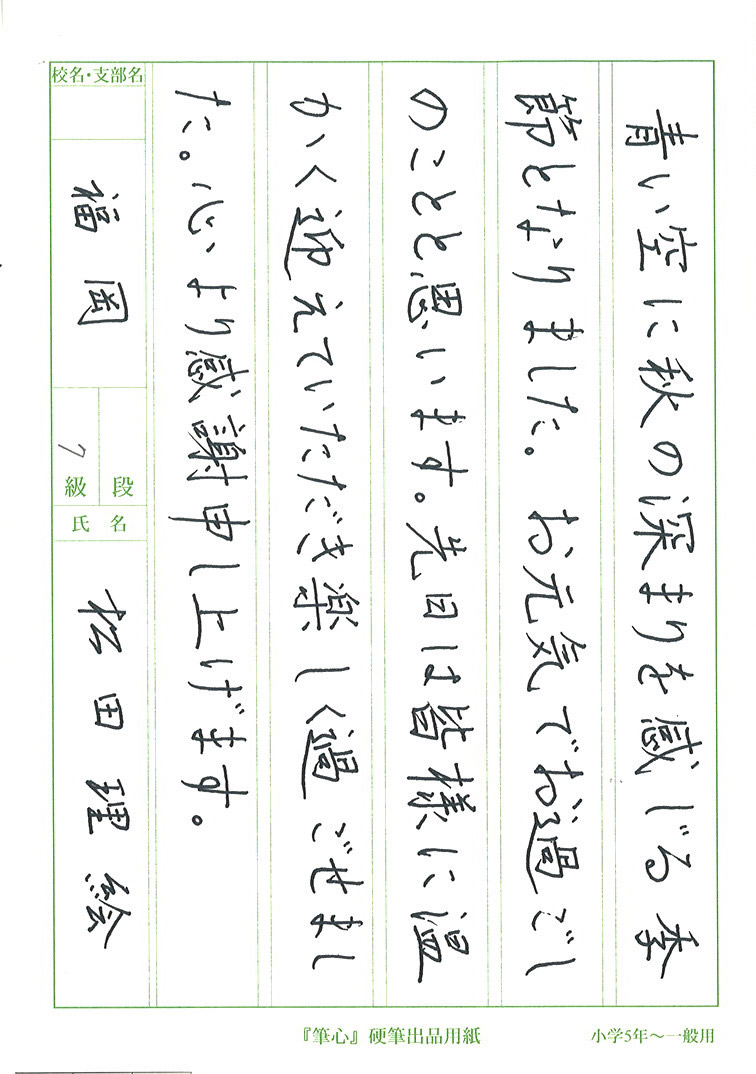 青い空に秋の深まりを感じる季
節となりました。お元気でお過ごし
のことと思います。先日は皆様に温
かく迎えていただき楽しく過ごせまし
た。心より感謝申し上げます。
校名・支部名
福岡
段
7級
氏名
松田理絵
『筆心』硬筆出品用紙
小学5年～一般用